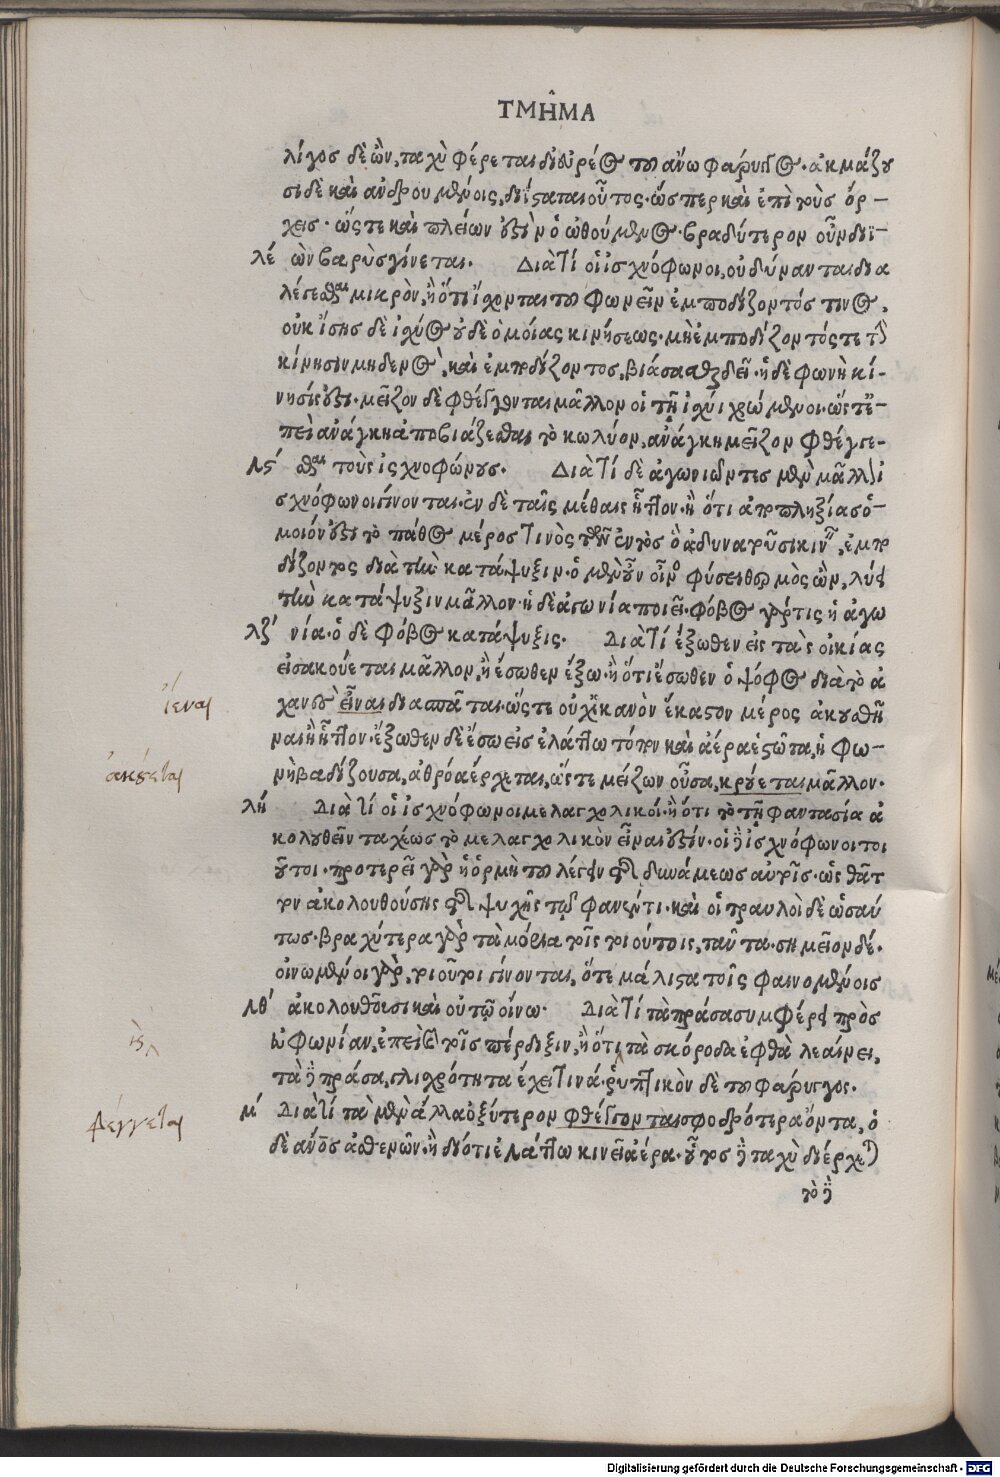 ΤΜΗ͂ΜΑ
λίγος δὲ ὢν, ταχὺ φέρεται διὰ τοῦ ἄνω φάρυγγος. ἀκμάζου
σι δὲ καὶ ἀνδρουμένοις, διΐσταται οὗτος. ὥσπερ καὶ ἐπὶ τοὺς ὄρ-
χεις. ὥςτε καὶ πλείων ἐστὶν ὁ ὠθούμενος. βραδύτερον οὖν διϊ-
λέ ὼν βαρὺς γίνεται. Διατί οἱ ἰσχνόφωνοι, οὐ δύνανται δια
λέγεσθαι μικρὸν, ἢ ὅτι ἴσχονται τοῦ φωνεῖν ἐμποδίζοντός τινος,
οὐκ ἴσης δὲ ἰσχύος οὐδὲ ὁμοίας κινήσεως. μὴ ἐμποδίζοντός τε τὴν
κίνησιν μηδενὸς, καὶ ἐμποδίζοντος, βιάσασθαι δεῖ. ἡ δὲ φωνὴ κί-
νησίς ἐστι. μεῖζον δὲ φθέγγονται μᾶλλον οἱ τῇ ἰσχύι χρώμενοι. ὥςτε
ἐπεὶ ἀνάγκη ἀποβιάζεσθαι τὸ κωλύον, ἀνάγκη μεῖζον φθέγγε-
λς´ σθαι τοὺς ἰσχνοφώνους. Διατί δὲ ἀγωνιῶντες μὲν μᾶλλον ἰ
σχνόφωνοι γίνονται. ἐν δὲ ταῖς μέθαις ἧττον. ἢ ὅτι ἀποπληξίας ὅ-
μοιόν ἐστι τὸ πάθος μέρος τινὸς τῶν ἐντὸς ὃ ἀδυνατοῦσι κινεῖν, ἐμπο
δίζοντος διὰ τὴν κατάψυξιν. ὁ μὲν οὖν οἶνος φύσει θερμὸς ὢν, λύει
τὴν κατάψυξιν μᾶλλον. ἡ δὲ ἀγωνία ποιεῖ. φόβος γάρ τις ἡ ἀγω
λζ´ νία. ὁ δὲ φόβος κατάψυξις. Διατί ἔξωθεν εἰς τὰς οἰκίας
εἰσακούεται μᾶλλον, ἢ ἔσωθεν ἔξω. ἢ ὅτι ἔσωθεν ὁ ψόφος διὰ τὸ ἀ
χανοῦ εἶναι διασπᾶται. ὥςτε οὐχ ἱκανὸν ἕκαστον μέρος ἀκουσθῆ
ναι ἢ ἧττον. ἔξωθεν δὲ ἔσω εἰς ἐλάττω τόπον καὶ ἀέρα ἑστῶτα, ἡ φω-
νὴ βαδίζουσα, ἀθρόα ἔρχεται, ὥςτε μείζων οὖσα, κρούεται μᾶλλον.
λή Διατί οἱ ἰσχνόφωνοι μελαγχολικοί. ἢ ὅτι τὸ τῇ φαντασίᾳ ἀ
κολουθεῖν ταχέως τὸ μελαγχολικὸν εἶναι ἐστίν. οἱ δὲ ἰσχνόφωνοι τοι
οῦτοι. προτερεῖ γὰρ ἡ ὁρμὴ τοῦ λέγειν τῆς δυνάμεως αὐτοῖς. ὡς θᾶτ
τον ἀκολουθούσης τῆς ψυχῆς τῷ φανέντι. καὶ οἱ τραυλοὶ δὲ ὡσαύ
τως. βραχύτερα γὰρ τὰ μόρια τοῖς τοιούτοις, ταῦτα. σημεῖον δέ.
οἰνωμένοι γὰρ, τοιοῦτοι γίνονται, ὅτε μάλιστα τοῖς φαινομένοις
λθ´ ἀκολουθοῦσι καὶ οὐ τῷ οἴνω. Διατί τὰ πράσα συμφέρει πρὸς
εὐφωνίαν, ἐπεὶ καὶ τοῖς πέρδιξιν, ἢ ὅτι τὰ σκόροδα ἑφθὰ λεαίνει,
τὰ δὲ πράσα, γλισχρότητα ἔχει τινά. ῥυπτικὸν δὲ τοῦ φάρυγγος.
μ´ Διατί τὰ μὲν ἄλλα ὀξύτερον φθέγγονται σφοδρότερα ὄντα, ὁ
δὲ ἄνος ἀσθενῶν. ἢ διότι ἐλάττω κινεῖ ἀέρα. οὗτος δὲ ταχὺ διέρχεται
τὸ δὲ
ἰέναι
ἀκούεται
φθέγγεται